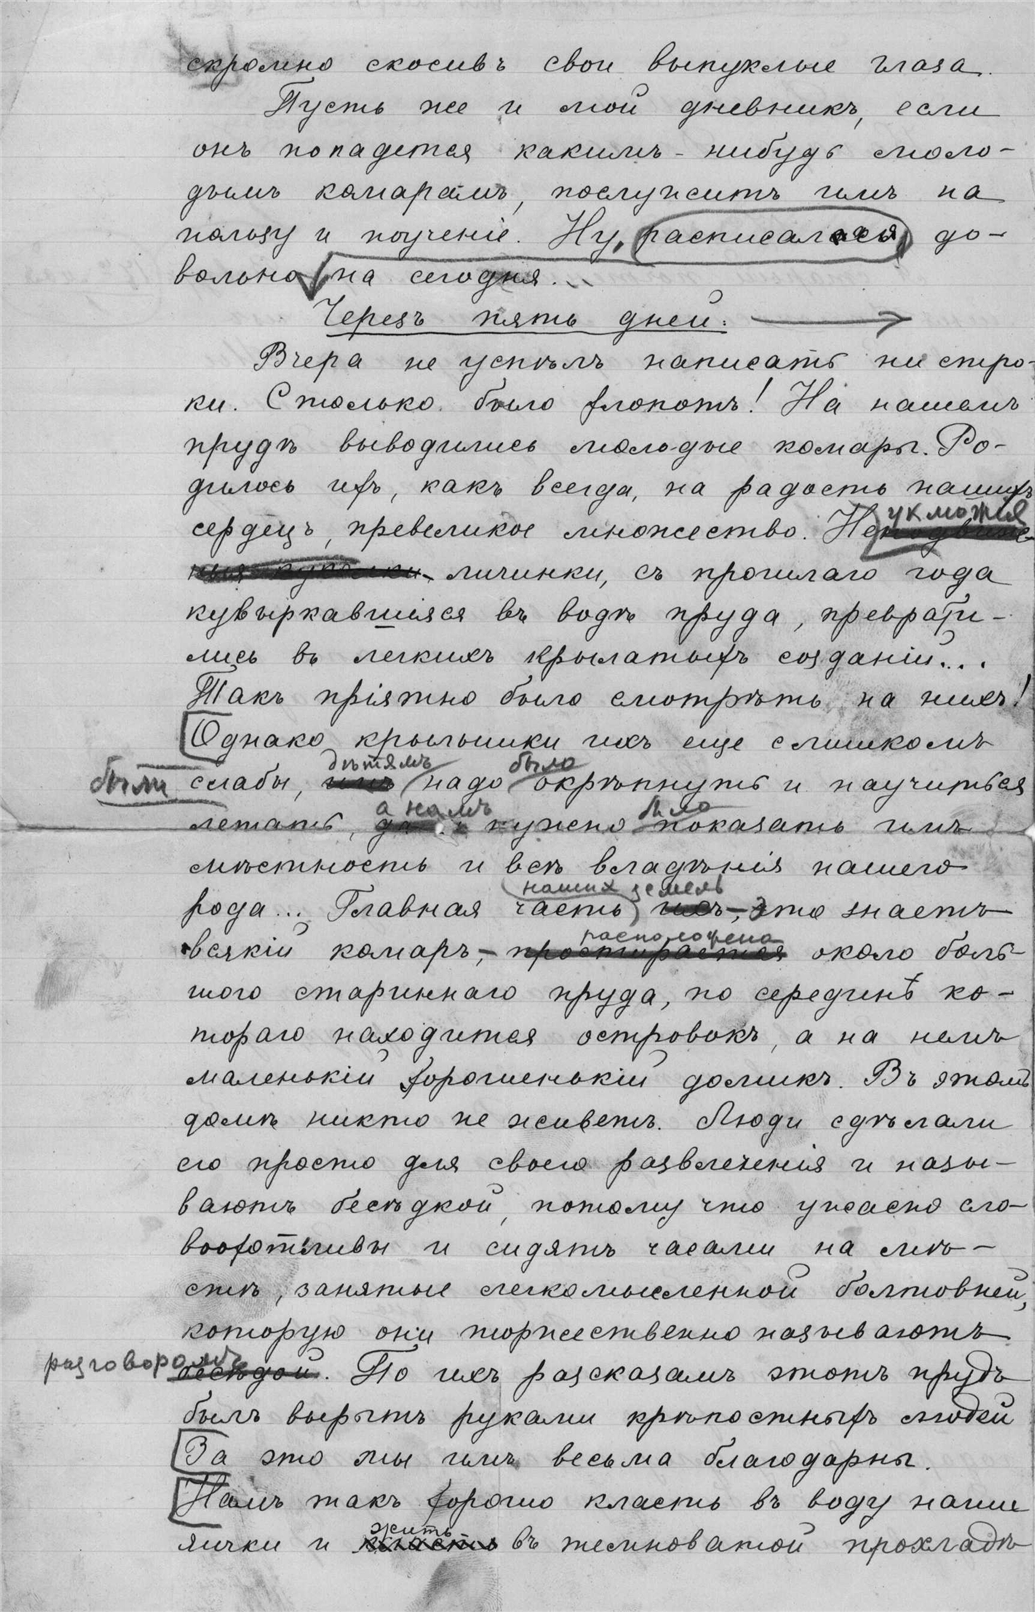 скромно скосивъ свои выпуклые глаза.
Пусть же и мой дневникъ, если
онъ попадется какимъ-нибудь моло-
дымъ комарамъ, послужитъ имъ на
пользу и поученіе. Ну, расписался, до-
вольно на сегодня...
Черезъ пять дней.
Вчера не успѣлъ написать ни стро-
ки. Столько было хлопотъ! На нашемъ
прудѣ выводились молодые комары. Ро-
дилось ихъ, какъ всегда, на радость нашихъ
сердецъ, превеликое множество.
личинки, съ прошлаго года
кувыркавшіяся въ водѣ пруда, преврати-
лись въ легкихъ крылатыхъ созданій...
Такъ пріятно было смотрѣть на нихъ!
Однако крылышки ихъ еще слишкомъ
были слабы, дѣтямъ надо было окрѣпнуть и научиться
летать, а намъ нужно было показать имъ
мѣстность и всѣ владѣнія нашего
рода... Главная часть нашихъ земель, это знаетъ
всякій комаръ, – расположена около боль-
шого стариннаго пруда, по серединѣ ко-
тораго находится островокъ, а на немъ
маленькій хорошенькій домикъ. Въ этомъ
домѣ никто не живетъ. Люди сдѣлали
его просто для своего развлеченія и назы-
ваютъ бесѣдкой, потому что ужасно сло-
воохотливы и сидятъ часами на мѣ-
стѣ, занятые легкомысленной болтовней,
которую они торжественно называютъ
разговоромъ бесѣдой. По ихъ разсказамъ этотъ прудъ
былъ вырытъ руками крѣпостныхъ людей
За это мы имъ весьма благодарны.
Намъ такъ хорошо класть въ воду наши
яички и жить въ темноватой прохладѣ